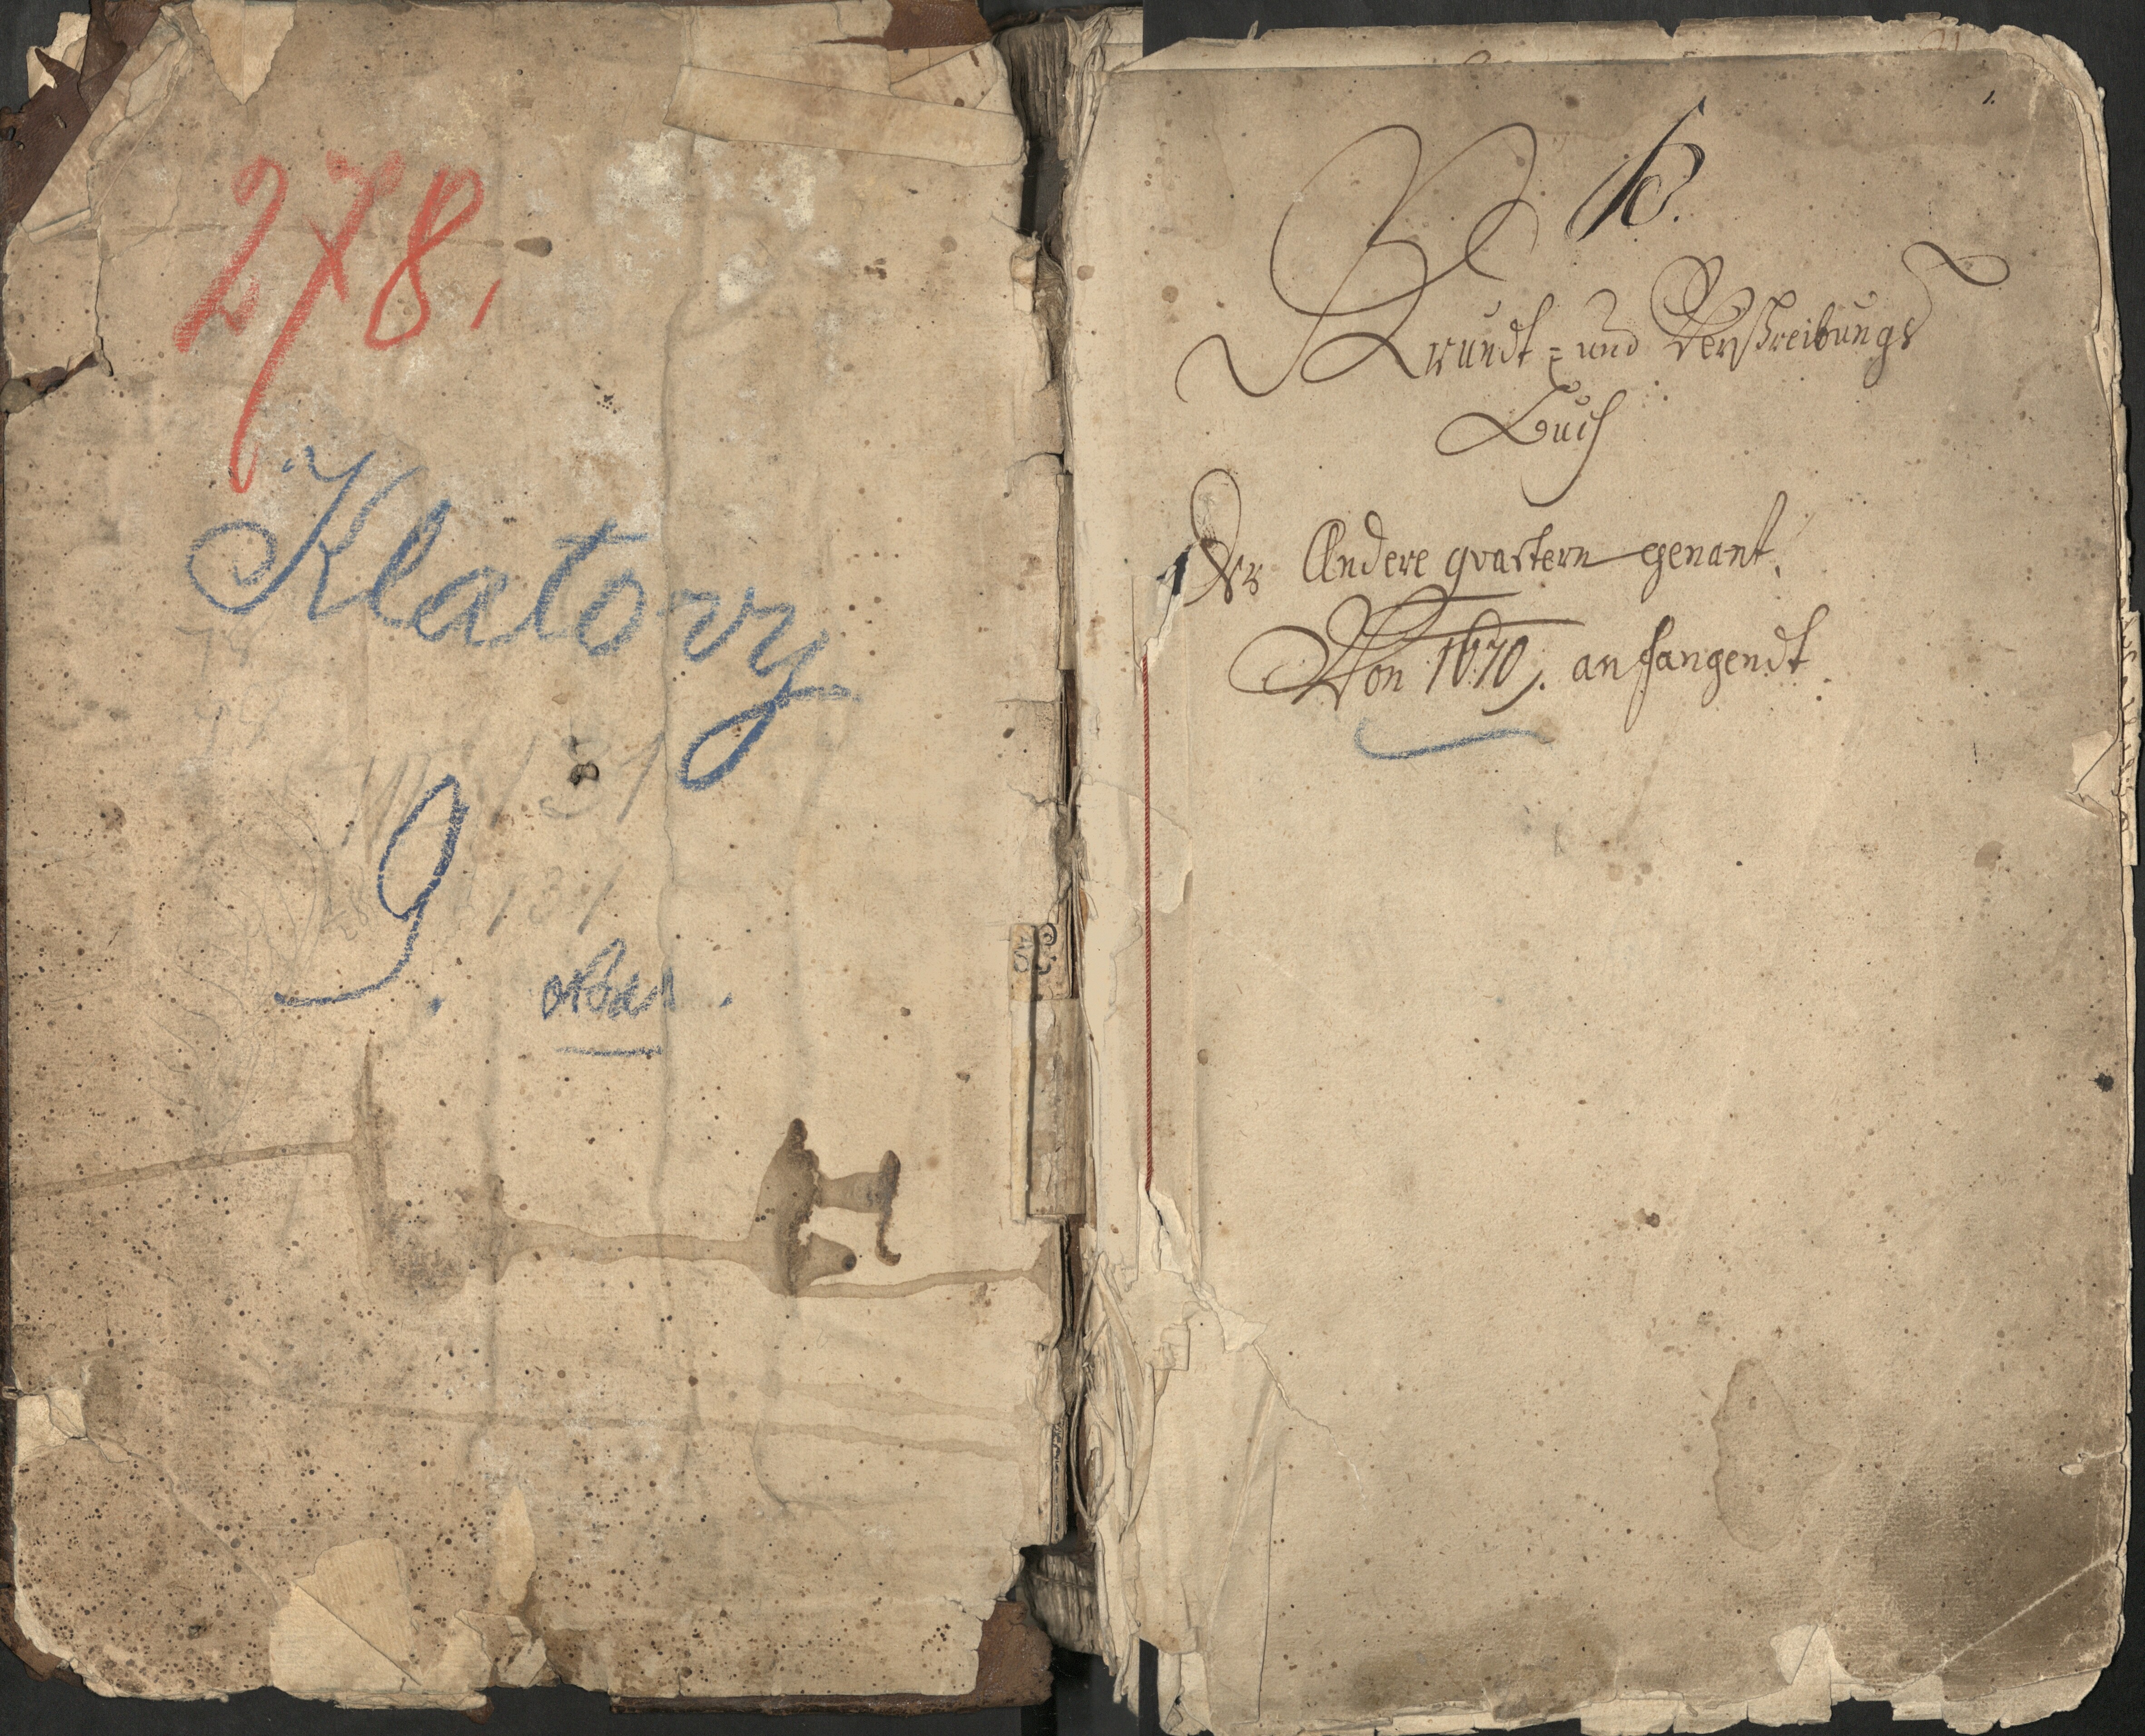 278.
Klatovy
131
9.
131
1.
Grundt = und Verschreibungs
Buch
Der Andere quartern genant,
Von 1670, anfangendt